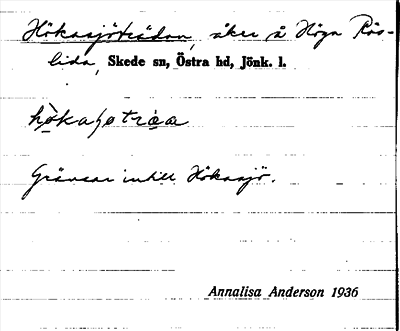 Hökasjöträdan, åker å Höga Rös-
lida, Skede sn, Östra hd, Jönk. l.
Gränsar intill Hökasjö.
Annalisa Anderson 1936